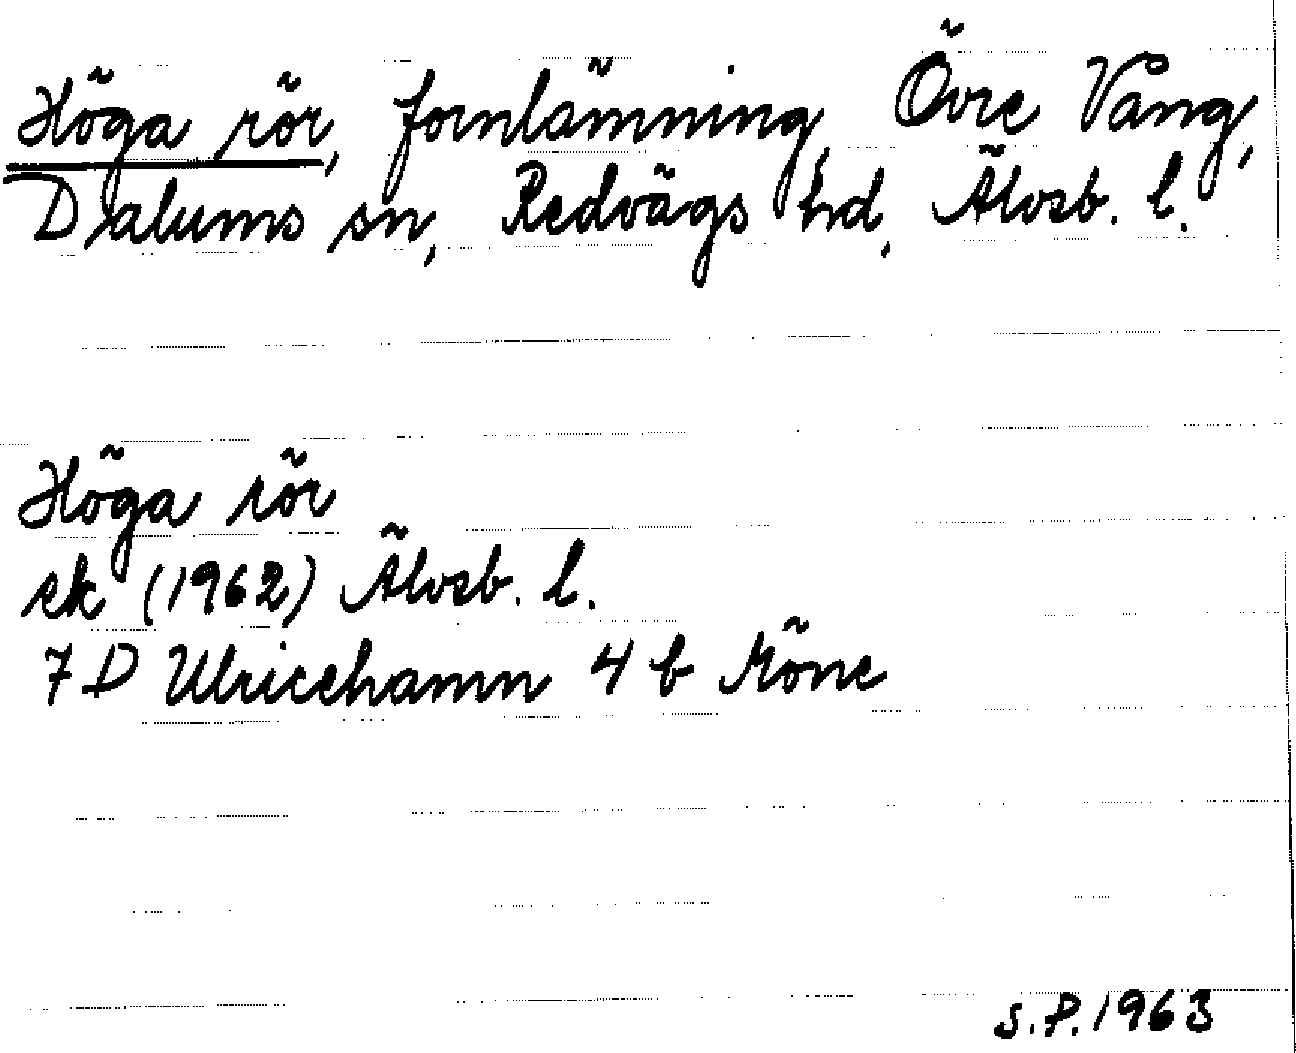 Höga rör, fornlämning, Övre Vång,
Dalums sn, Redvägs hd, Älvsb. l.
Höga rör
ek (1962) Älvsb. l.
7 D Ulricehamn 4 b Möne
S.P. 1963